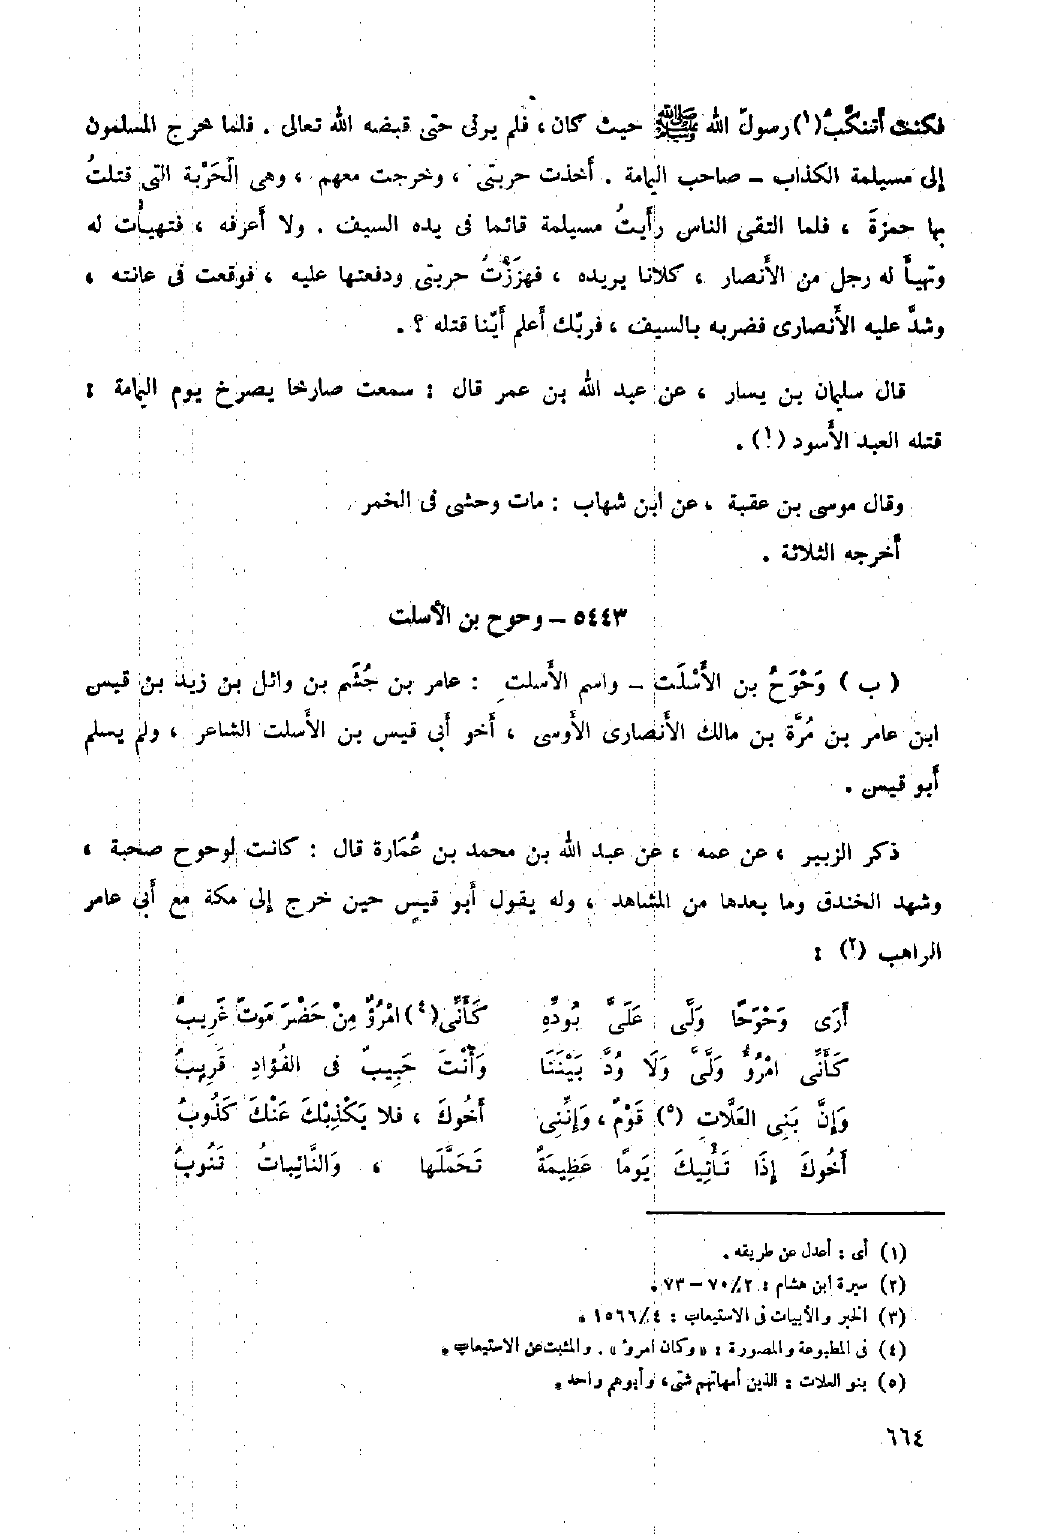 فكنت أتنكَّبُ(١)رسولَ الله ﷺ حيث كان، فلم يرنى حتى قبضه الله تعالى . فلما خرج المسلمون
إلى مسيلمة الكذاب – صاحب اليمامة . أخذت حربتى ، وخرجت معهم ، وهى الْحَرْبة التى قتلتُ
بها حمزةَ ، فلما التقى الناس رأيتُ مسيلمة قائما فى يده السيف . ولا أعرفه ، فتهيأت له
وتهيأ له رجل من الأنصار ، كلانا يريده ، فهزَزْتُ حربتى ودفعتها عليه ، فوقعت فى عانته ،
وشدَّ عليه الأنصارى فضربه بالسيف ، فربّك أعلم أيّنا قتله ؟ .
قال سليمان بن يسار ، عن عبد الله بن عمر قال : سمعت صارخا يصرخ يوم اليمامة :
قتله العبد الأسود (٢) .
وقال موسى بن عقبة ، عن ابن شهاب : مات وحشى فى الخمر
أخرجه الثلاثة .
٥٤٤٣ – وحوح بن الأسلت
( ب ) وَحْوَحُ بن الأسْلَت – واسم الأسلتِ : عامر بن جُشَم بن وائل بن زيد بن قيس
ابن عامر بن مُرَّة بن مالك الأنصارى الأوسى ، أخو أبى قيس بن الأسلت الشاعر ، ولم يسلم
أبو قيس .
ذكر الزبير ، عن عمه ، عن عبد الله بن محمد بن عُمَارة قال : كانت لوحوح صحبة ،
وشهد الخندق وما بعدها من المشاهد ، وله يقول أبو قيس حين خرج إلى مكة مع أبى عامر
الراهب (٣) :
أَرَى وَحْوَحًا وَلَّى عَلَىَّ بُودِّهِ كَأَنِّى(٤) امْرُؤٌ مِنْ حَضْرَ مَوتَ غَرِيبُ
كَأَنِّى امْرُؤٌ وَلَّى وَلَا وُدَّ بَيْنَنَا وَأَنْتَ حَبِيبٌ فى الفُؤادِ قَرِيبُ
وَإِنَّ بَنِى العَلَّاتِ (٥) قَوْمٌ ، وَإِنَّنِى أَخُوكَ ، فلا يَكْذِبْكَ عَنْكَ كَذُوبُ
أَخُوكَ إِذَا تَأْتِيكَ يَومًا عَظِيمَةٌ تَحَمَّلَها ، وَالنَّائِباتُ تَنُوبُ
(١) أى : أعدل عن طريقه .
(٢) سيرة ابن هشام : ٢/ ٧٠ – ٧٣ .
(٣) الخبر والأبيات فى الاستيعاب : ٤/ ١٥٦٦ .
(٤) فى المطبوعة والمصورة : «وكان امرؤ» . والمثبت عن الاستيعاب .
(٥) بنو العلات : الذين أمهاتهم شتى، وأبوهم واحد .
٦٦٤